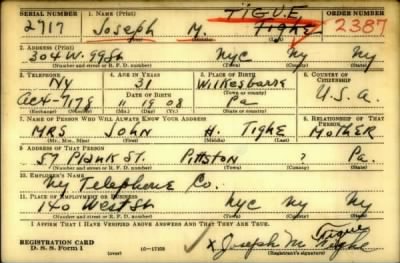 SERIAL NUMBER 1. NAME (Print) TIGUE ORDER NUMBER
2717 JOSEPH M. TIGHE 2387
2. ADDRESS (Print)
304 W. 99 St NYC NY NY
3. TELEPHONE 4. AGE IN YEARS 5. PLACE OF BIRTH 6. COUNTRY OF CITIZENSHIP
NY 31 Wilkesbarre
DATE OF BIRTH
11 19 08 Pa U.S.A.
7. NAME OF PERSON WHO WILL ALWAYS KNOW YOUR ADDRESS 8. RELATIONSHIP OF THAT PERSON
MRS JOHN H. TIGHE MOTHER
(Mr., Mrs., Miss) (First) (Middle) (Last)
9. ADDRESS OF THAT PERSON
57 Plank St. Pittston ? Pa.
(Number and street or R. F. D. number) (Town) (County) (State)
10. EMPLOYER'S NAME
NY Telephone Co.
11. PLACE OF EMPLOYMENT OR BUSINESS
140 West St NYC NY NY
(Number and street or R. F. D. number) (Town) (County) (State)
I AFFIRM THAT I HAVE VERIFIED ABOVE ANSWERS AND THAT THEY ARE TRUE.
Tigue
REGISTRATION CARD x Joseph M Tighe
D. S. S. Form 1 (over) (Registrant's signature)